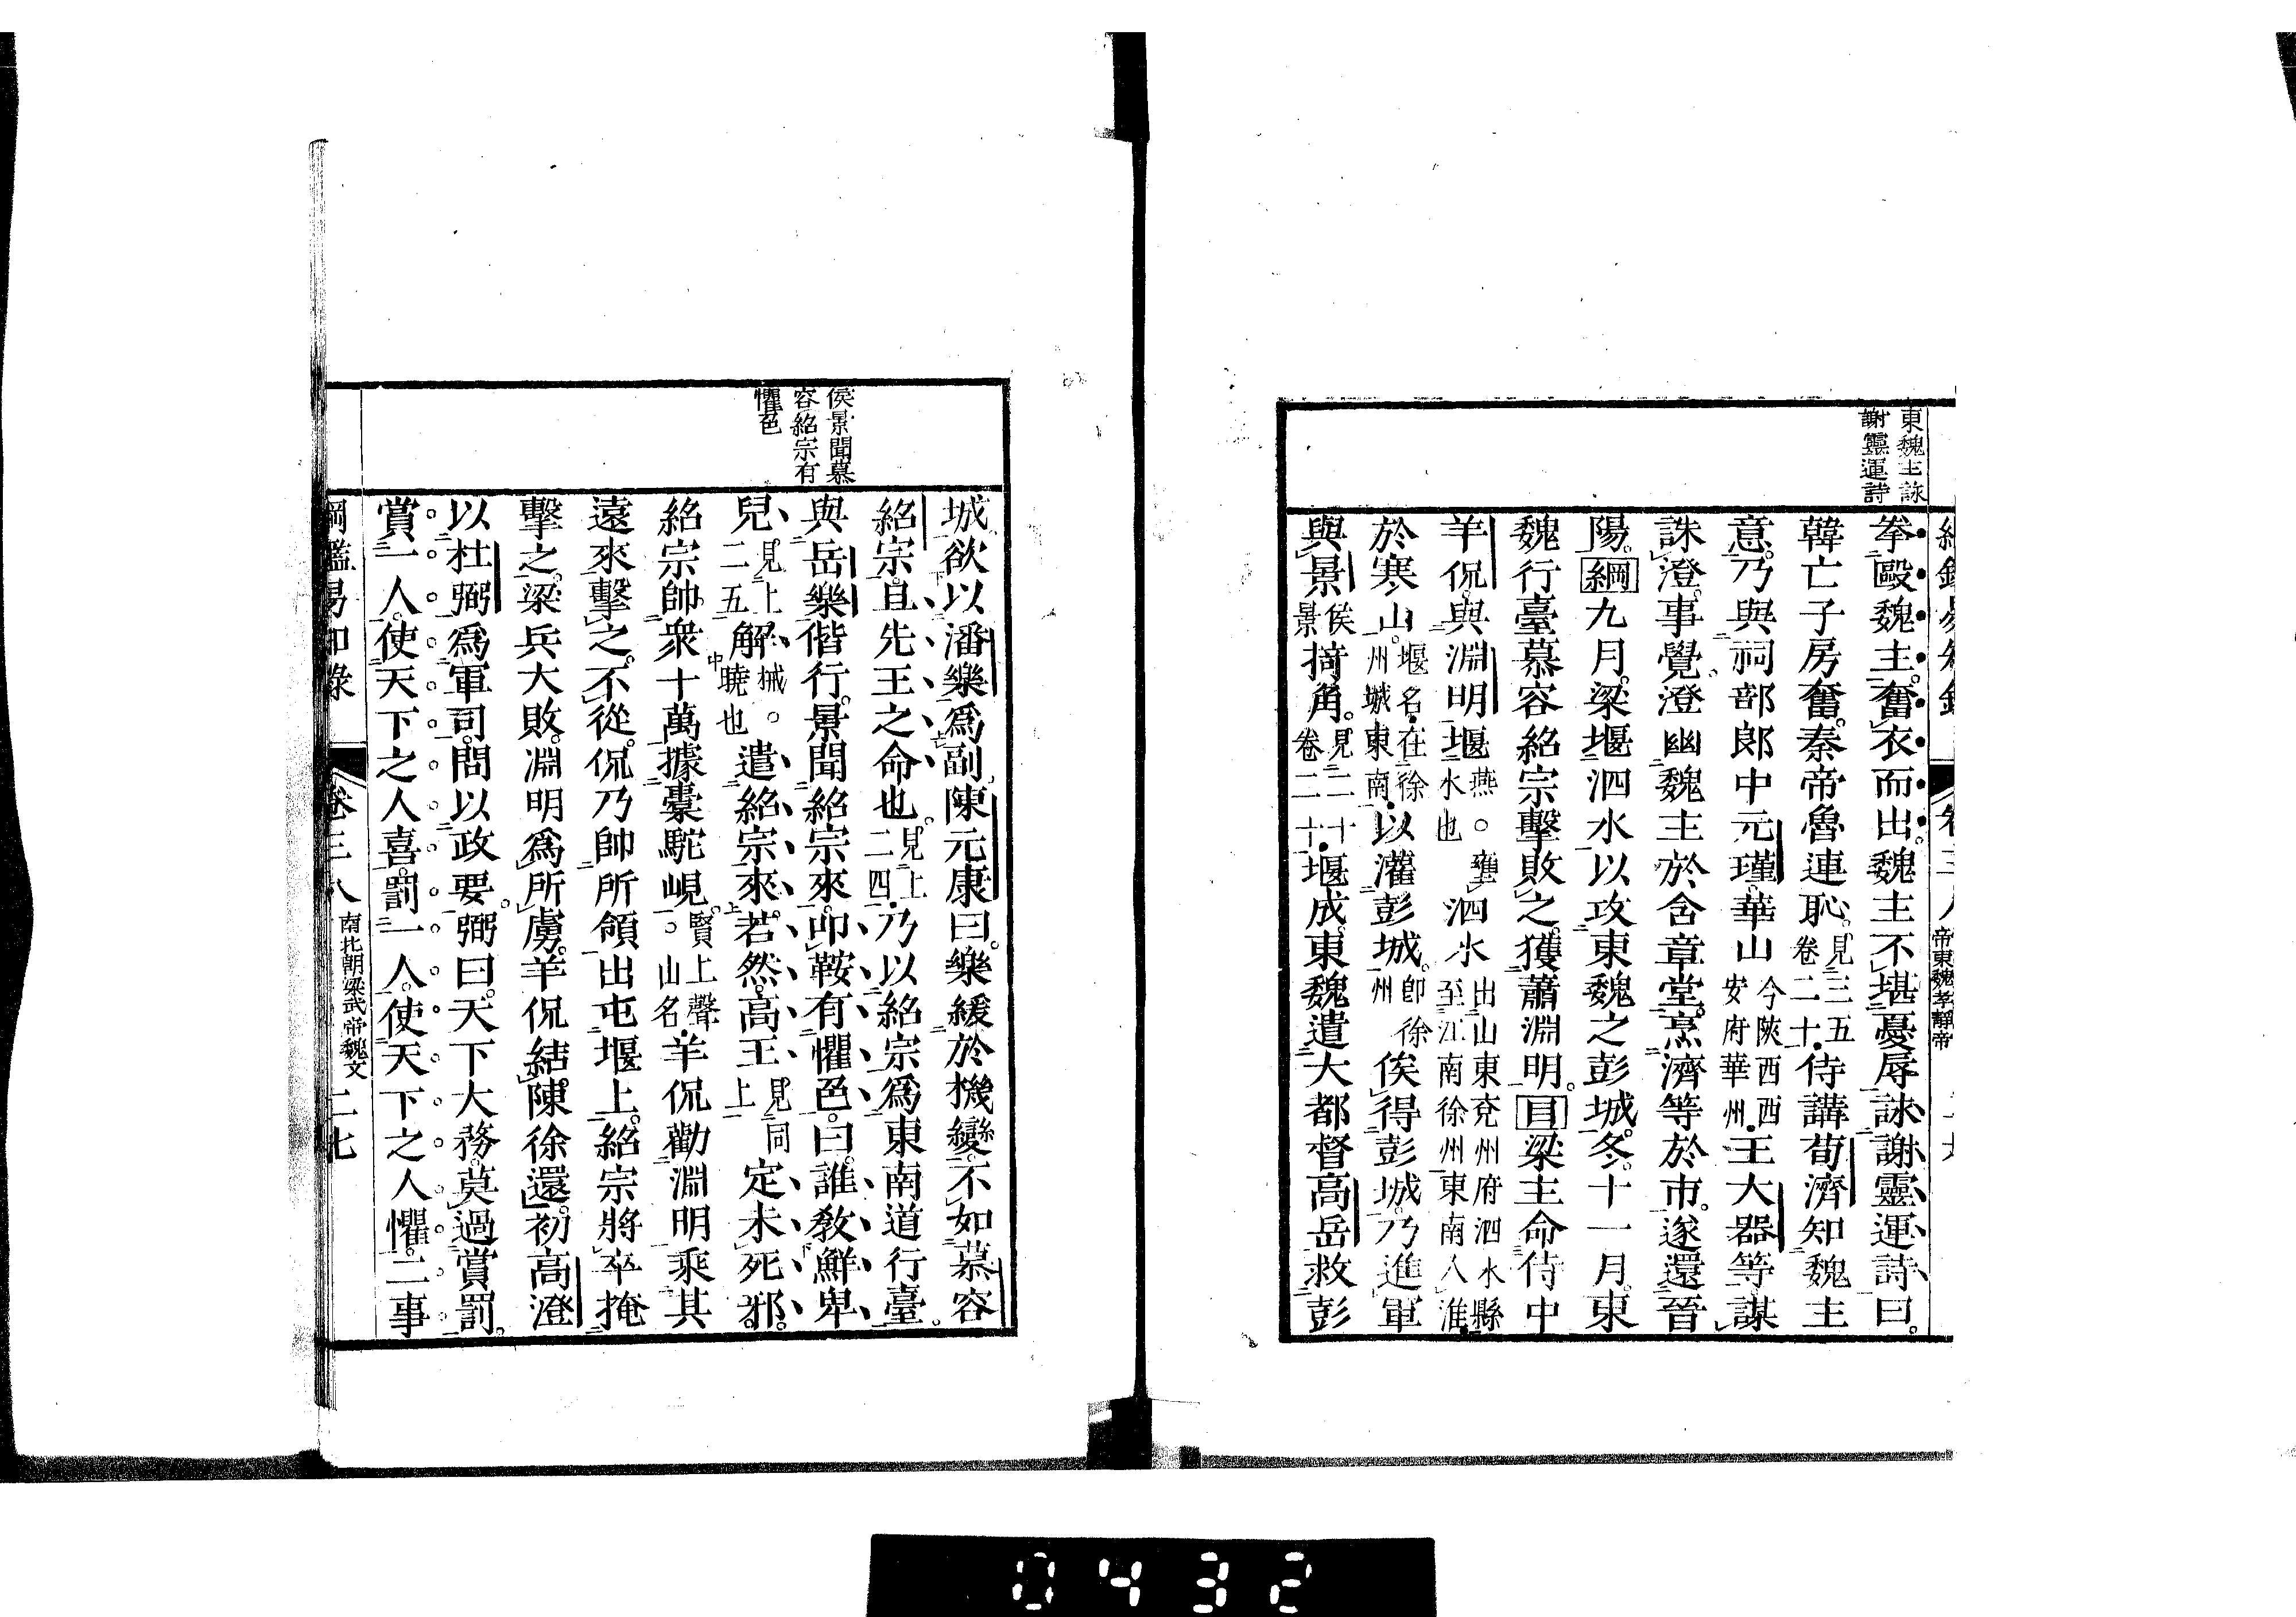 東魏主詠
謝靈運詩
帝東魏孝靜帝
拳毆魏主。奮衣而出。魏主不堪憂辱。詠謝靈運詩曰。
韓亡子房奮。秦帝魯連恥。見三五卷二十侍講荀濟知魏主
意。乃與祠部郎中元瑾。華山今陝西西安府華州王大器等。謀
誅澄。事覺。澄幽魏主於含章堂。烹濟等於市。遂還晉
陽。綱九月。梁堰泗水以攻東魏之彭城。冬。十一月。東
魏行臺慕容紹宗擊敗之。獲蕭淵明。目梁主命侍中
羊侃。與淵明堰燕。壅水也泗水出山東兗州府泗水縣至江南徐州東南入淮
於寒山。堰名在徐州城東南以灌彭城。卽徐州俟得彭城。乃進軍
與景侯景掎角。見二十卷二十堰成。東魏遣大都督高岳救彭
侯景聞慕
容紹宗有
懼色
城。欲以潘樂爲副。陳元康曰。樂緩於機變。不如慕容
紹宗。且先王之命也。見上二四乃以紹宗爲東南道行臺。
與岳樂偕行。景聞紹宗來。叩鞍有懼色。曰。誰敎鮮卑
兒。見上二五解械。曉也遣紹宗來。若然。高王見同上定未死邪。
紹宗帥。衆十萬。據橐駝峴。賢上聲。山名羊侃勸淵明乘其
遠來擊之。不從。侃乃帥所領出屯堰上。紹宗將卒掩
擊之。梁兵大敗。淵明爲所虜。羊侃結陳徐還。初高澄
以杜弼爲軍司。問以政要。弼曰。天下大務。莫過賞罰。
賞一人。使天下之人喜。罰一人。使天下之人懼。二事
綱鑑易知錄 卷三八 南北朝梁武帝魏文 二七
0432